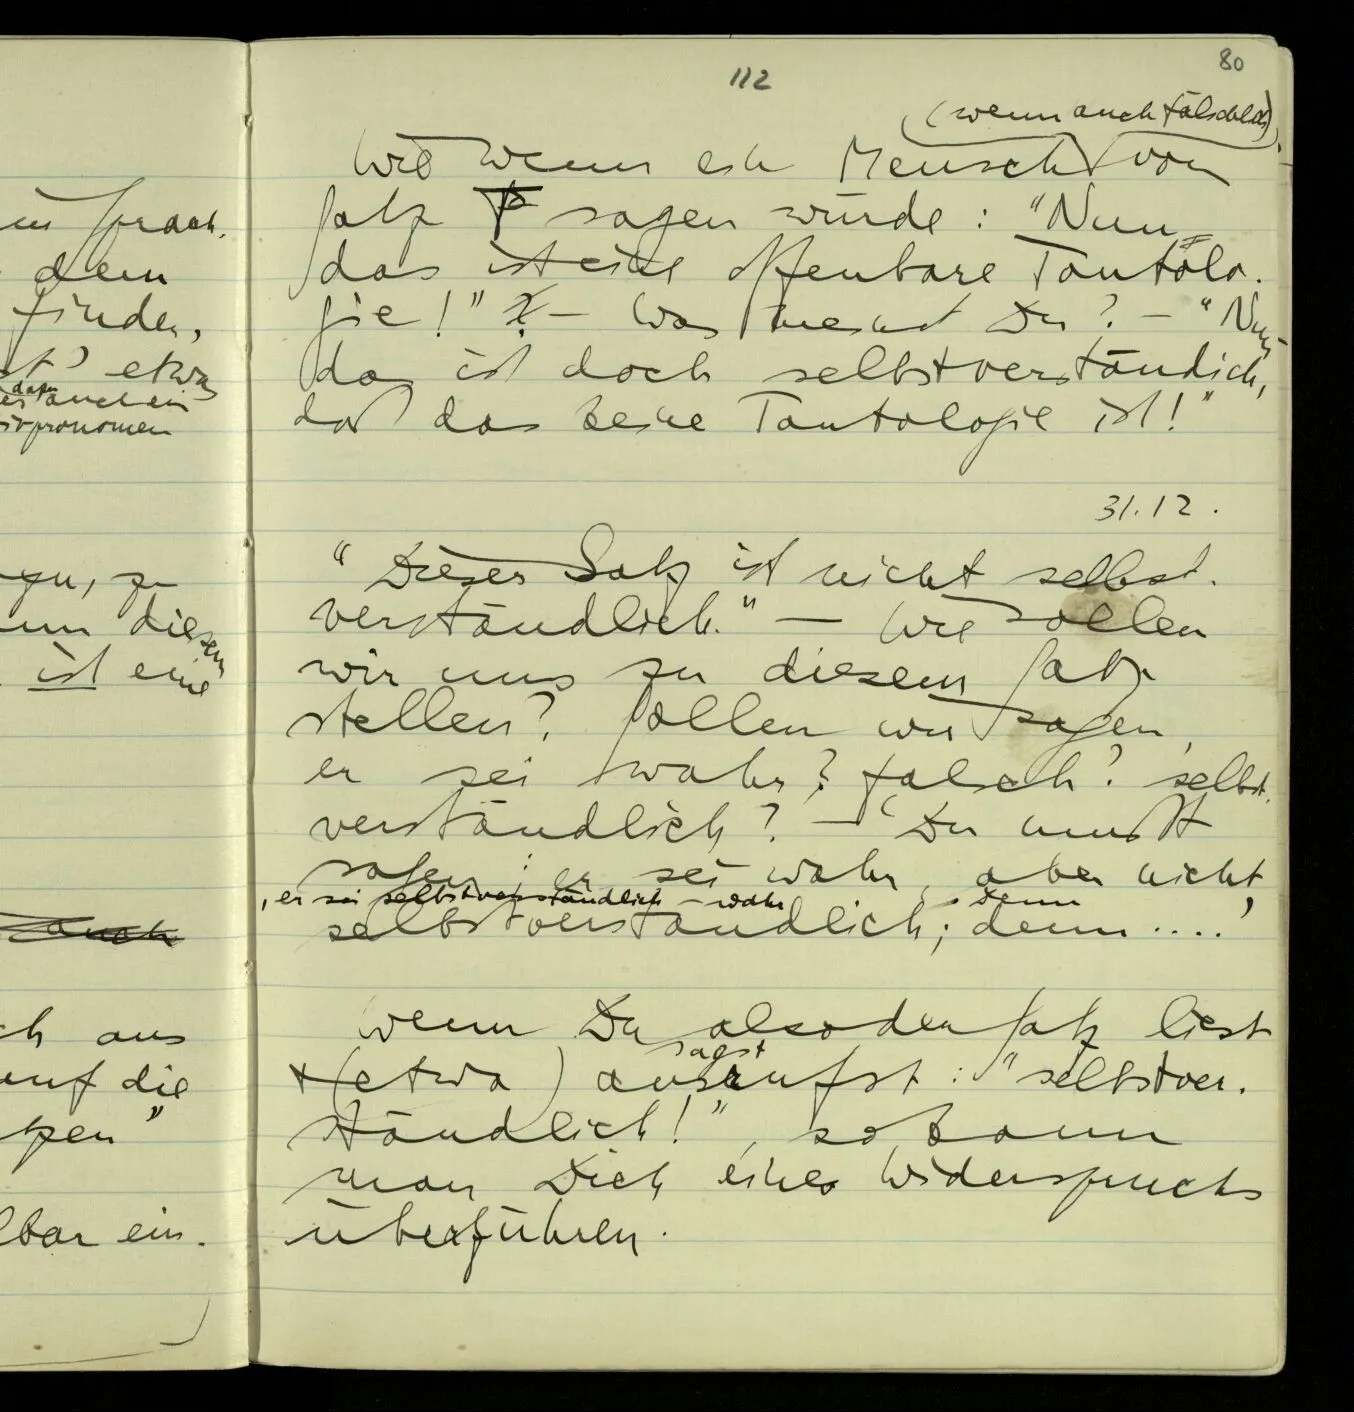 112
80
(wenn auch fälschlich)
Wie wenn ein Mensch von
Satz P sagen würde: "Nun,
das ist eine offenbare Tautolo-
gie!" – Was meinst Du? – "Nun
das ist doch selbstverständich,
daß das keine Tautologie ist!"
31.12.
"Dieser Satz ist nicht selbst-
verständlich." – Wie sollen
wir uns zu diesem Satz
stellen? Sollen wir sagen,
er sei wahr? falsch? selbst-
verständlich? – 'Du mußt
sagen: er sei wahr, aber nicht,
, er sei selbstverständlich – wahr, denn
selbstverständlich; denn ....'
Wenn Du also den Satz liest
+ (etwa) ausrufst: "selbstver-
sagst
ständlich!", so kann
man Dich eines Widerspruchs
überführen.
Sprach-
dem
finden,
etwas
dazu
auch ein
pronomen
zu
diesem
ist eine
auch
aus
auf die
ein-